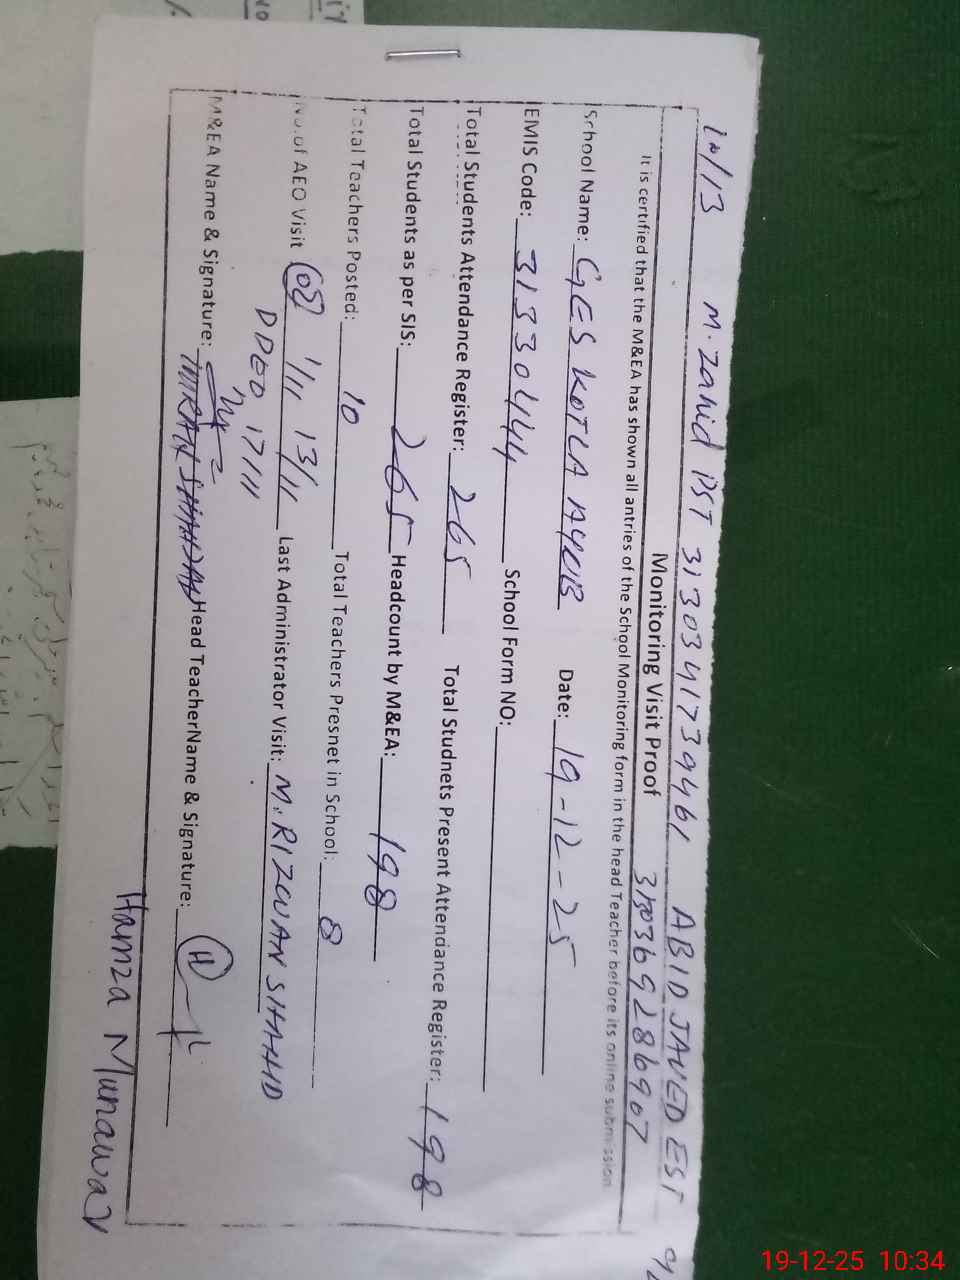 M. Zahid PST 3130341739461 ABID JAVED EST
3130369286907
Monitoring Visit Proof
It is certified that the M&EA has shown all antries of the School Monitoring form in the head Teacher before its online submission
School Name: GES KOTLA AYUB Date: 19-12-25
EMIS Code: 31330444 School Form NO:
Total Students Attendance Register: 265 Total Studnets Present Attendance Register: 198
Total Students as per SIS: 265 Headcount by M&EA: 198
Total Teachers Posted: 10 Total Teachers Presnet in School: 8
No.of AEO Visit 02 1/11 13/11 Last Administrator Visit: M. RIZWAN SHAHID
DDEO 17/11
M&EA Name & Signature: Head TeacherName & Signature:
Hamza Munawar
19-12-25 10:34